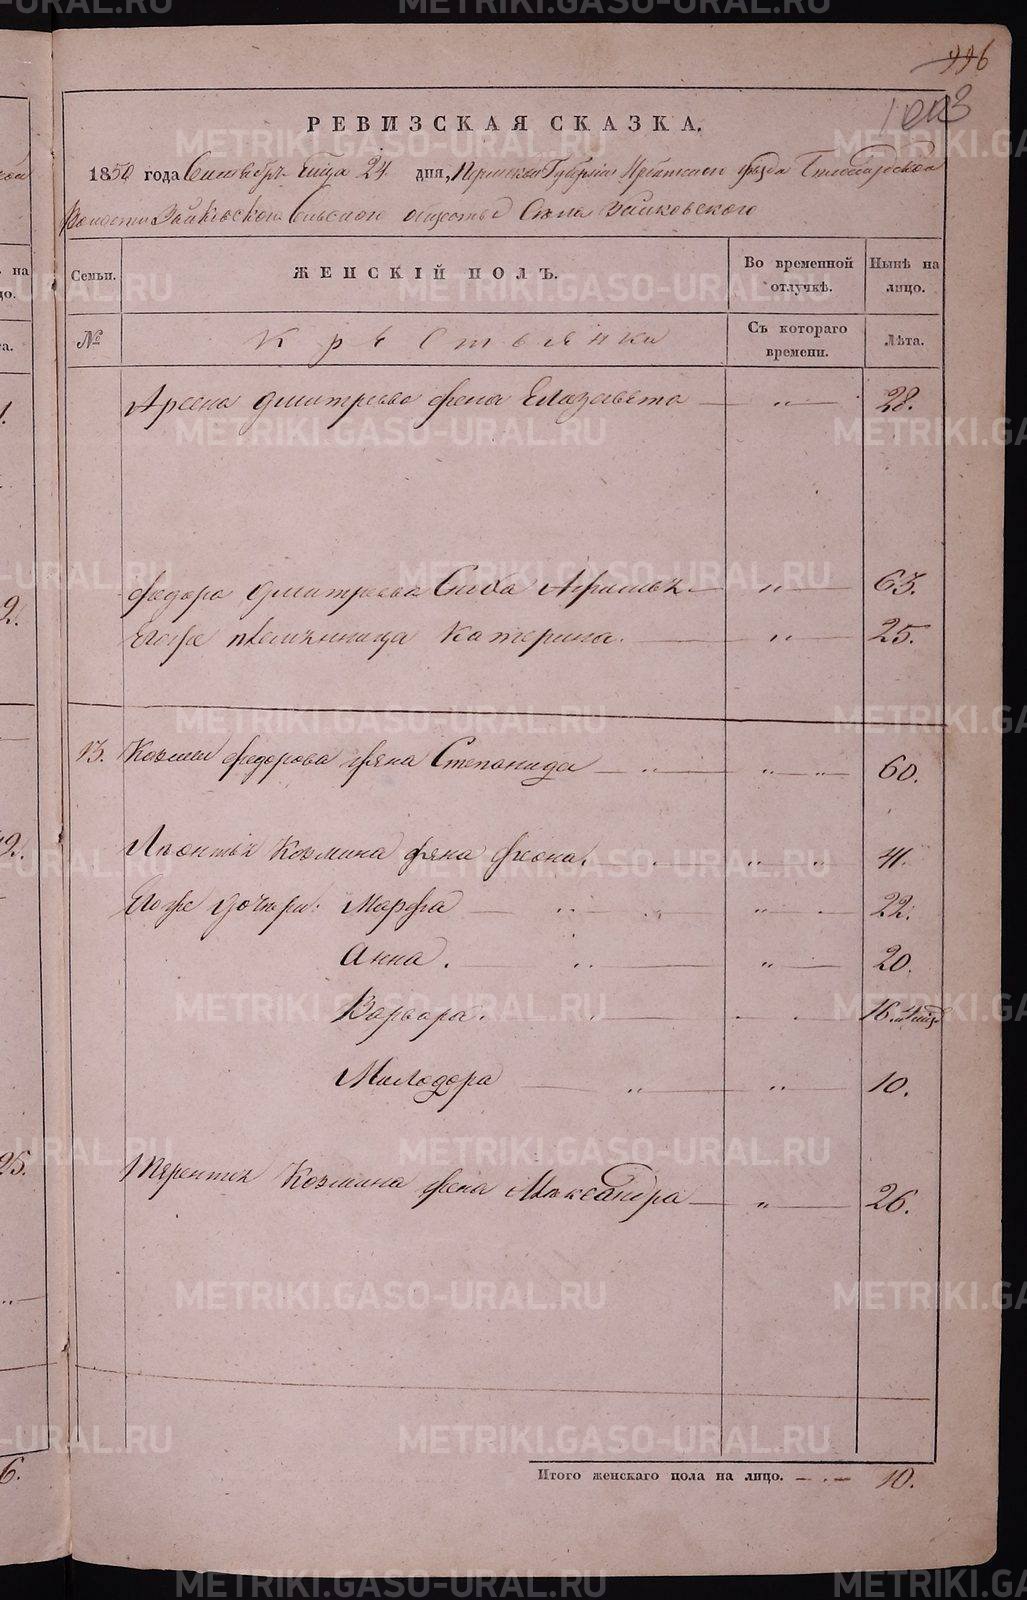 996
1003
РЕВИЗСКАЯ СКАЗКА.
1850 года Сентября м-ца 24 дня, Пермской Губернии Ирбитского уезда
Волости Зайковского Сельского общества Села Зайковского
Семьи. ЖЕНСКІЙ ПОЛЪ. Во временной отлучкѣ. Нынѣ на лицо.
№ Крестьянки Съ котораго времени. Лѣта.
Дмитриева жена Елизавета — „ — 28.
Федора Дмитриева — „ — 63.
Его же племянница Катерина. — „ — 25.
13. Козмы Федорова жена Степанида — „ — „ — „ 60.
Леонтья Козмина жена Феона. „ „ 41.
Его же дочери: Марфа — „ — „ — 22.
Анна. — „ — „ — 20.
Варвара. — 16.
Милодора — „ — „ — 10.
Терентья Козмина жена Александра — „ — 26.
Итого женскаго пола на лицо. — „ — 10.
METRIKI.GASO-URAL.RU